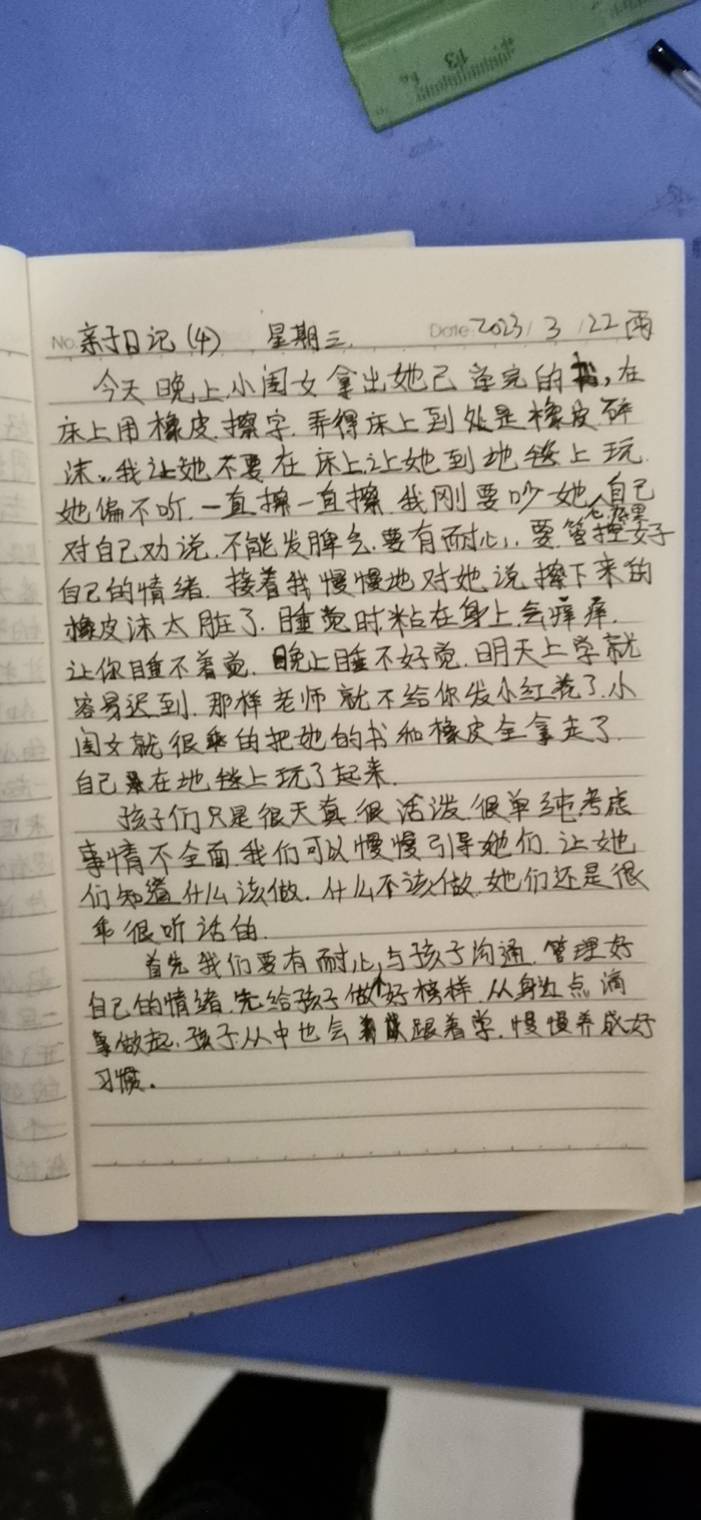 13
No. 亲子日记(4) 星期三. Date. 2023/3/22 雨
今天晚上,小闺女拿出她已 完的 ,在
床上用橡皮.擦字.弄得床上到处是橡皮碎
沫。我让她不要在床上,让她到地毯上玩.
她偏不听.一直擦一直擦.我刚要吵她,自己
对自己劝说.不能发脾气.要有耐心,要管控好
自己的情绪.接着我慢慢地对她说.擦下来的
橡皮沫太脏了.睡觉时,粘在身上,会痒痒.
让你睡不着觉.晚上睡不好觉.明天上学就
容易迟到.那样老师就不给你发小红花了.小
闺女就很乖的把她的书和橡皮全拿走了.
自己在地毯上玩了起来.
孩子们只是很天真.很活泼.很单纯.考虑
事情不全面.我们可以慢慢引导她们.让她
们知道什么该做.什么不该做.她们还是很
乖很听话的.
首先我们要有耐心,与孩子沟通.管理好
自己的情绪.先给孩子做好榜样.从身边点滴
事做起.孩子从中也会跟着学.慢慢养成好
习惯.